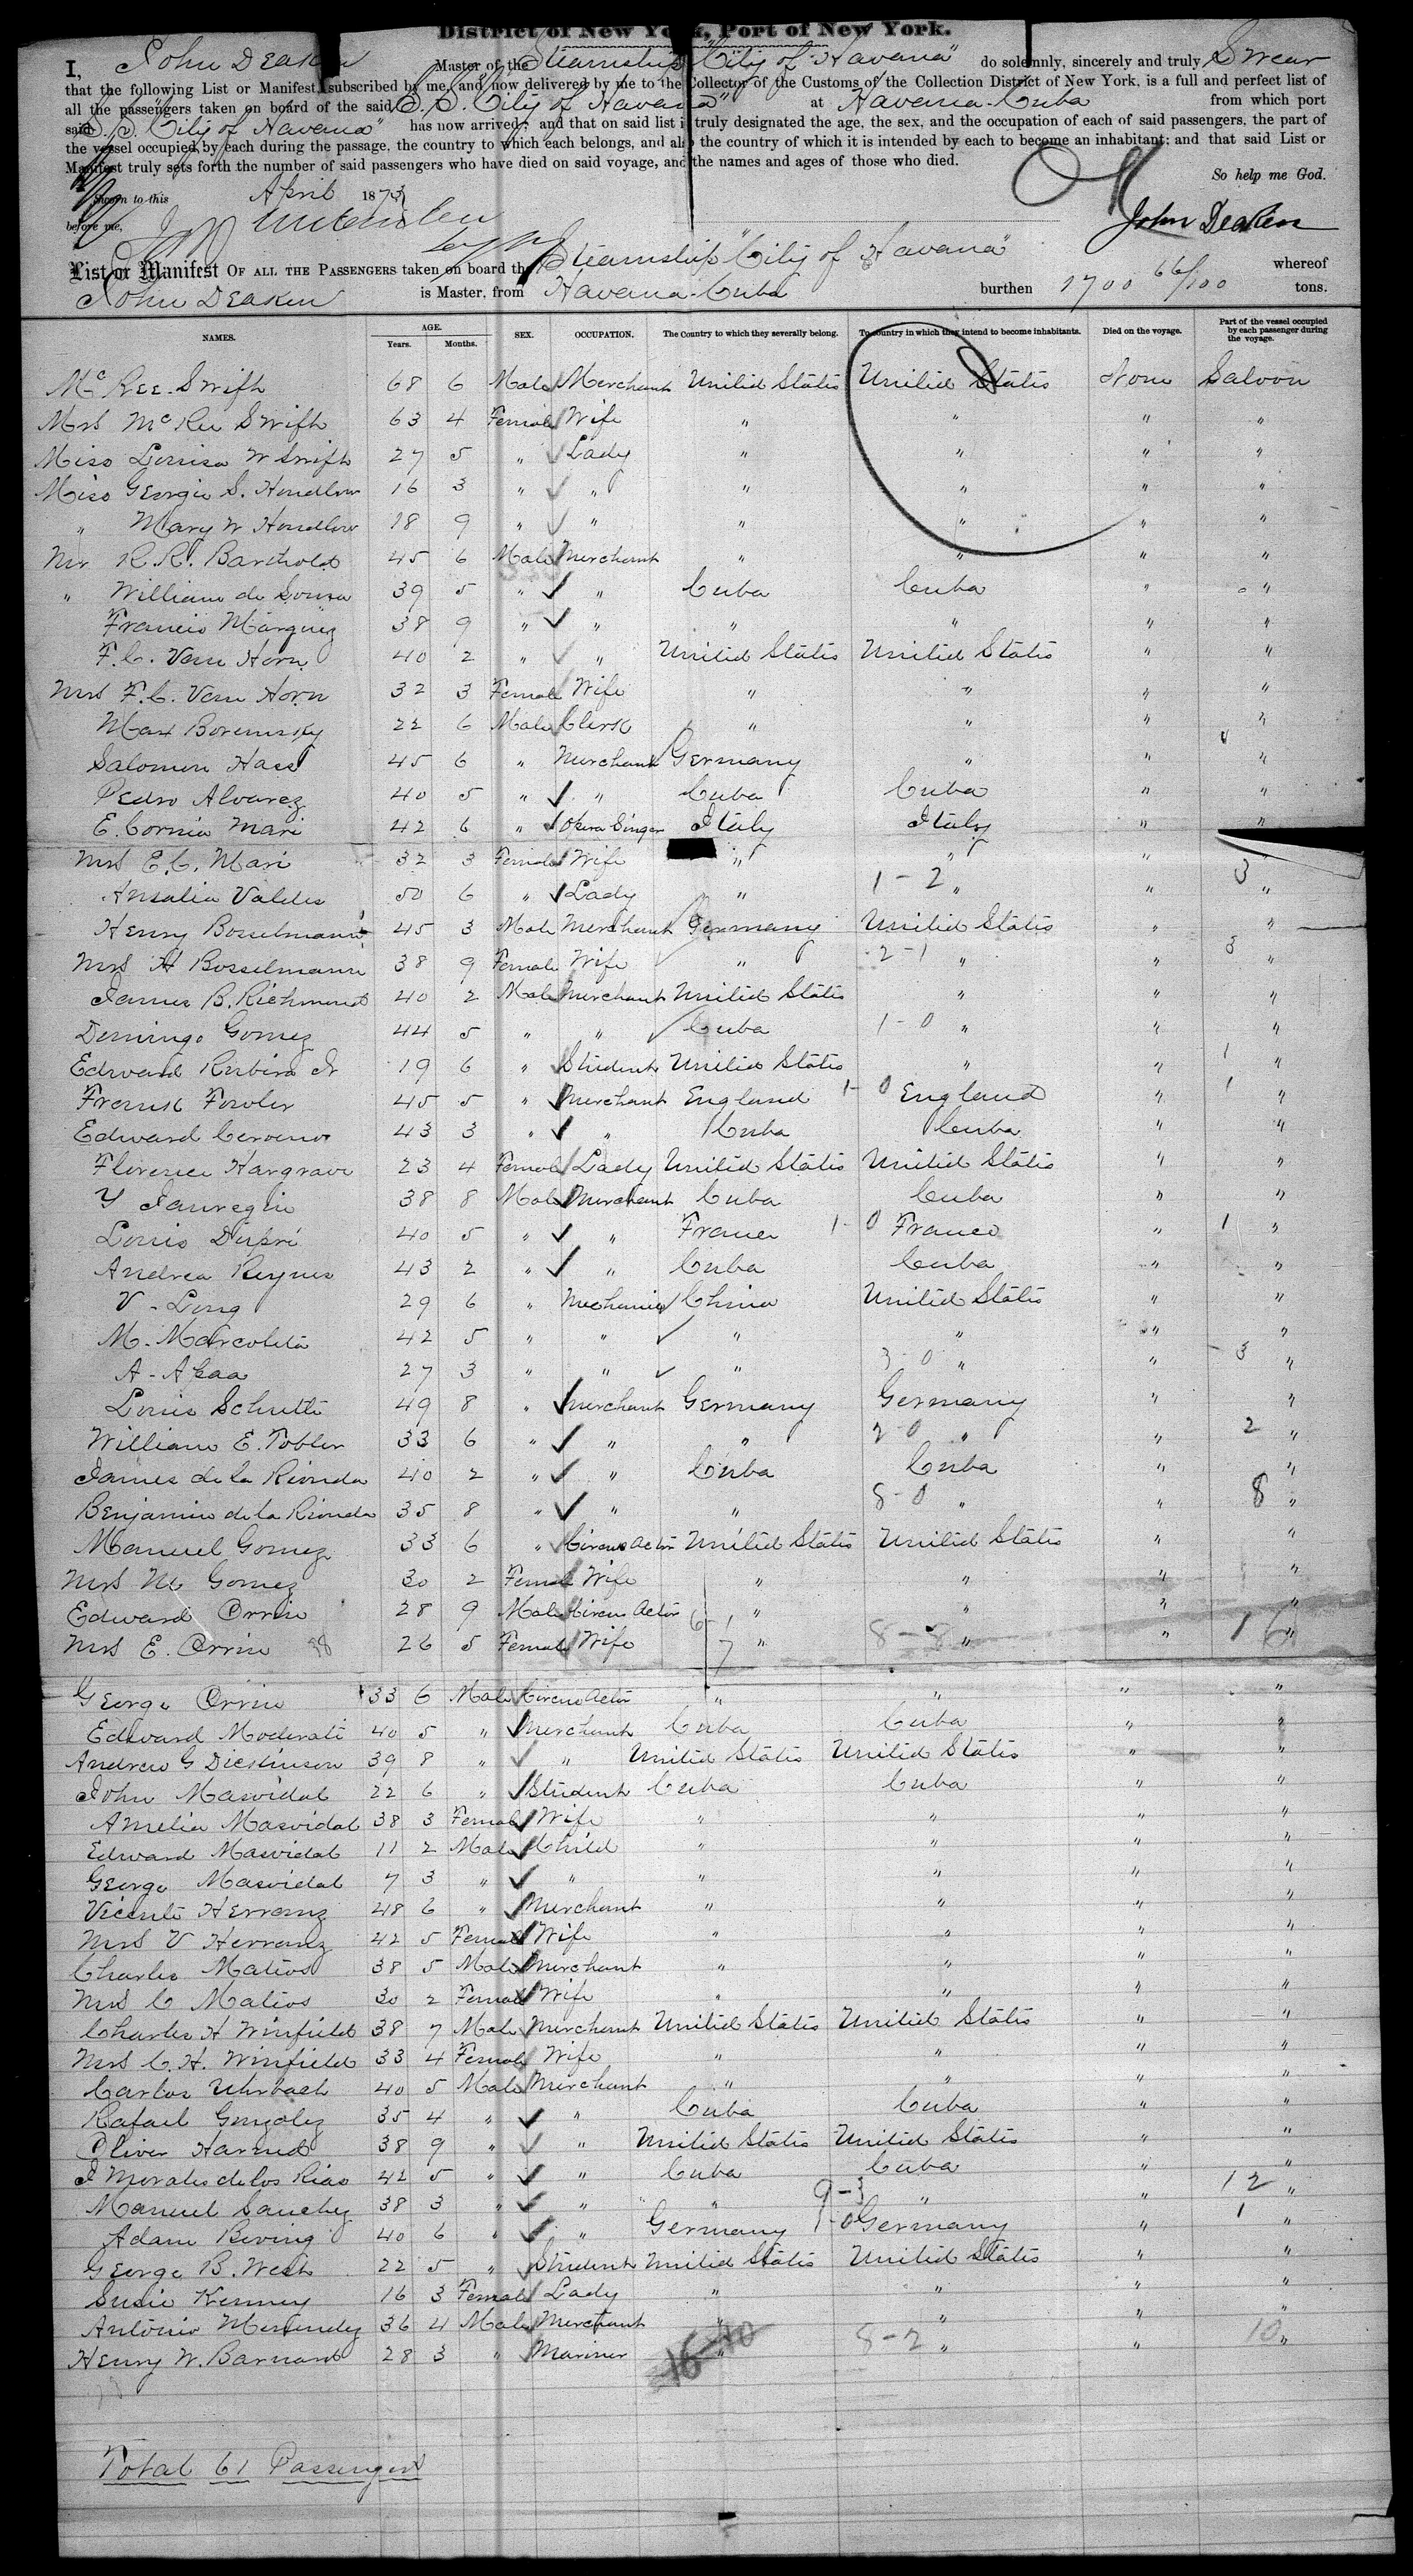 District of New York, Port of New York.
I, John Deaken Master of the Steamship "City of Havana" do solemnly, sincerely and truly Swear
that the following List or Manifest, subscribed by me, and now delivered by me to the Collector of the Customs of the Collection District of New York, is a full and perfect list of
all the passengers taken on board of the said S.S. City of Havana" at Havana-Cuba from which port
said S.S. City of Havana" has now arrived; and that on said list is truly designated the age, the sex, and the occupation of each of said passengers, the part of
the vessel occupied by each during the passage, the country to which each belongs, and also the country of which it is intended by each to become an inhabitant; and that said List or
Manifest truly sets forth the number of said passengers who have died on said voyage, and the names and ages of those who died.
So help me God.
Sworn to this April 1873
before me, John Deaken
List or Manifest OF ALL THE PASSENGERS taken on board the Steamship "City of Havana" whereof
John Deaken is Master, from Havana-Cuba burthen 1700 66/100 tons.
NAMES. AGE. Years. Months. SEX. OCCUPATION. The Country to which they severally belong. To country in which they intend to become inhabitants. Died on the voyage. Part of the vessel occupied by each passenger during the voyage.
McRee Swift 68 6 Male Merchant United States United States None Saloon
Mrs McRee Swift 63 4 Female Wife " " " "
Miss Louisa W Swift 27 5 " Lady " " " "
Miss Georgie S. Hondlow 16 3 " " " " " "
" Mary W Hondlow 18 9 " " " " " "
Mr R.R. Barthold 45 6 Male Merchant " " " "
" William de Sousa 39 5 " " Cuba Cuba " "
Francis Marquez 38 9 " " " " " "
F.C. Van Horn 40 2 " " United States United States " "
Mrs F.C. Van Horn 32 3 Female Wife " " " "
Max Boremsky 22 6 Male Clerk " " " "
Salomon Hass 45 6 " Merchant Germany " " "
Pedro Alvarez 40 5 " " Cuba Cuba " "
E. Cornia Mari 42 6 " Opera Singer Italy Italy " "
Mrs E.C. Mari 32 3 Female Wife " " " "
Ansalia Valdes 50 6 " Lady " 1-2 " " 3 "
Henry Bosselmann 45 3 Male Merchant Germany United States " "
Mrs H Bosselmann 38 9 Female Wife " 2-1 " " 3 "
James B. Richmond 40 2 Male Merchant United States " " "
Domingo Gomez 44 5 " " Cuba 1-0 " " "
Edward Rubira Jr 19 6 " Student United States " " 1 "
Frank Fowler 45 5 " Merchant England 1-0 England " 1 "
Edward Cerveno 43 3 " " Cuba Cuba " "
Florence Hargrave 23 4 Female Lady United States United States " "
Y Jauregui 38 8 Male Merchant Cuba Cuba " "
Louis Dupré 40 5 " " France 1-0 France " 1 "
Andrea Reynes 43 2 " " Cuba Cuba " "
V - Long 29 6 " Mechanic China United States " "
M. Marcoleta 42 5 " " " " " "
A - Akaa 27 3 " " " 3-0 " " 3 "
Louis Schutte 49 8 " Merchant Germany Germany " "
William E. Tobler 33 6 " " " 2-0 " " 2 "
James de la Rionda 40 2 " " Cuba Cuba " "
Benjamin de la Rionda 35 8 " " " 8-0 " " 8 "
Manuel Gomez 33 6 " Circus Actor United States United States " "
Mrs M Gomez 30 2 Female Wife " " " "
Edward Orrin 28 9 Male Circus Actor 6-1 " " " "
Mrs E. Orrin 38 26 5 Female Wife 7 " 8-8 " " 16 "
George Orrin 33 6 Male Circus Actor " " " "
Edward Moderati 40 5 " Merchant Cuba Cuba " "
Andrew G Dickinson 39 8 " " United States United States " "
John Masvidal 22 6 " Student Cuba Cuba " "
Amelia Masvidal 38 3 Female Wife " " " "
Edward Masvidal 11 2 Male Child " " " "
George Masvidal 7 3 " " " " " "
Vicente Herranz 48 6 " Merchant " " " "
Mrs V Herranz 42 5 Female Wife " " " "
Charles Matios 38 5 Male Merchant " " " "
Mrs C Matios 30 2 Female Wife " " " "
Charles H Winfield 38 7 Male Merchant United States United States " "
Mrs C.H. Winfield 33 4 Female Wife " " " "
Carlos Uhrbach 40 5 Male Merchant " " " "
Rafael Gonzalez 35 4 " " Cuba Cuba " "
Oliver Harned 38 9 " " United States United States " "
J Morales de los Rios 42 5 " " Cuba Cuba " "
Manuel Sanchez 38 3 " " " 9-3 " " 12 "
Adam Beving 40 6 " " Germany 1-0 Germany " 1 "
George B. West 22 5 " Student United States United States " "
Susie Kenney 16 3 Female Lady " " " "
Antonio Menendez 36 4 Male Merchant " " " "
Henry W. Barnard 28 3 " Mariner " 8-2 " " 10 "
16-40
Total 61 Passengers